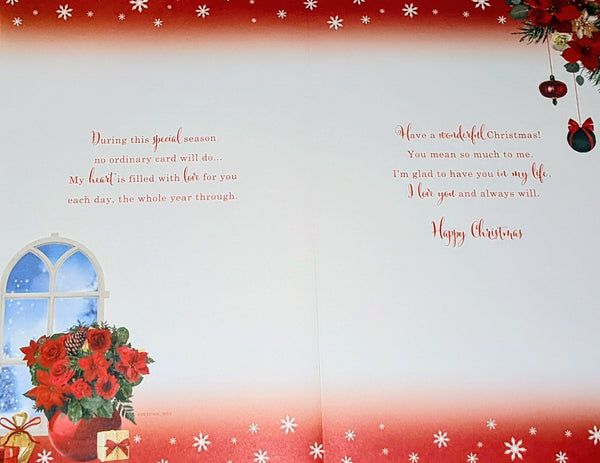 During this special season
no ordinary card will do...
My heart is filled with love for you
each day, the whole year through.
Have a wonderful Christmas!
You mean so much to me.
I'm glad to have you in my life.
I love you and always will.
Happy Christmas